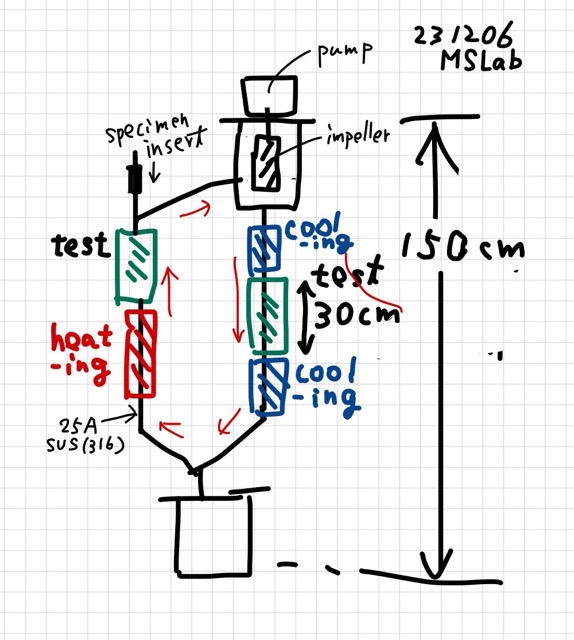 231206
MSLab
pump
specimen
insert
impeller
test
cool
-ing
150cm
test
30cm
heat
-ing
cool
-ing
25A
SUS(316)